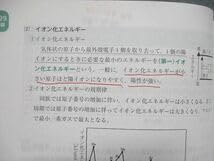 29
(2) イオン化エネルギー
1) イオン化エネルギー
気体状の原子から最外殻電子1個を取り去って，1価の陽
イオンにするときに必要な最小のエネルギーを（第一）イオ
ン化エネルギーという。一般に，イオン化エネルギーが小
さい原子ほど陽イオンになりやすく，陽性が強い。
2) イオン化エネルギーの周期律
同族では原子番号の増加に伴い，イオン化エネルギーは
同周期では原子番号の増加に伴い，イオン化エネルギー